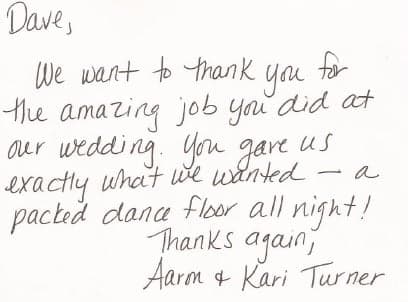 Dave,
We want to thank you for
the amazing job you did at
our wedding. You gave us
exactly what we wanted – a
packed dance floor all night!
Thanks again,
Aaron & Kari Turner